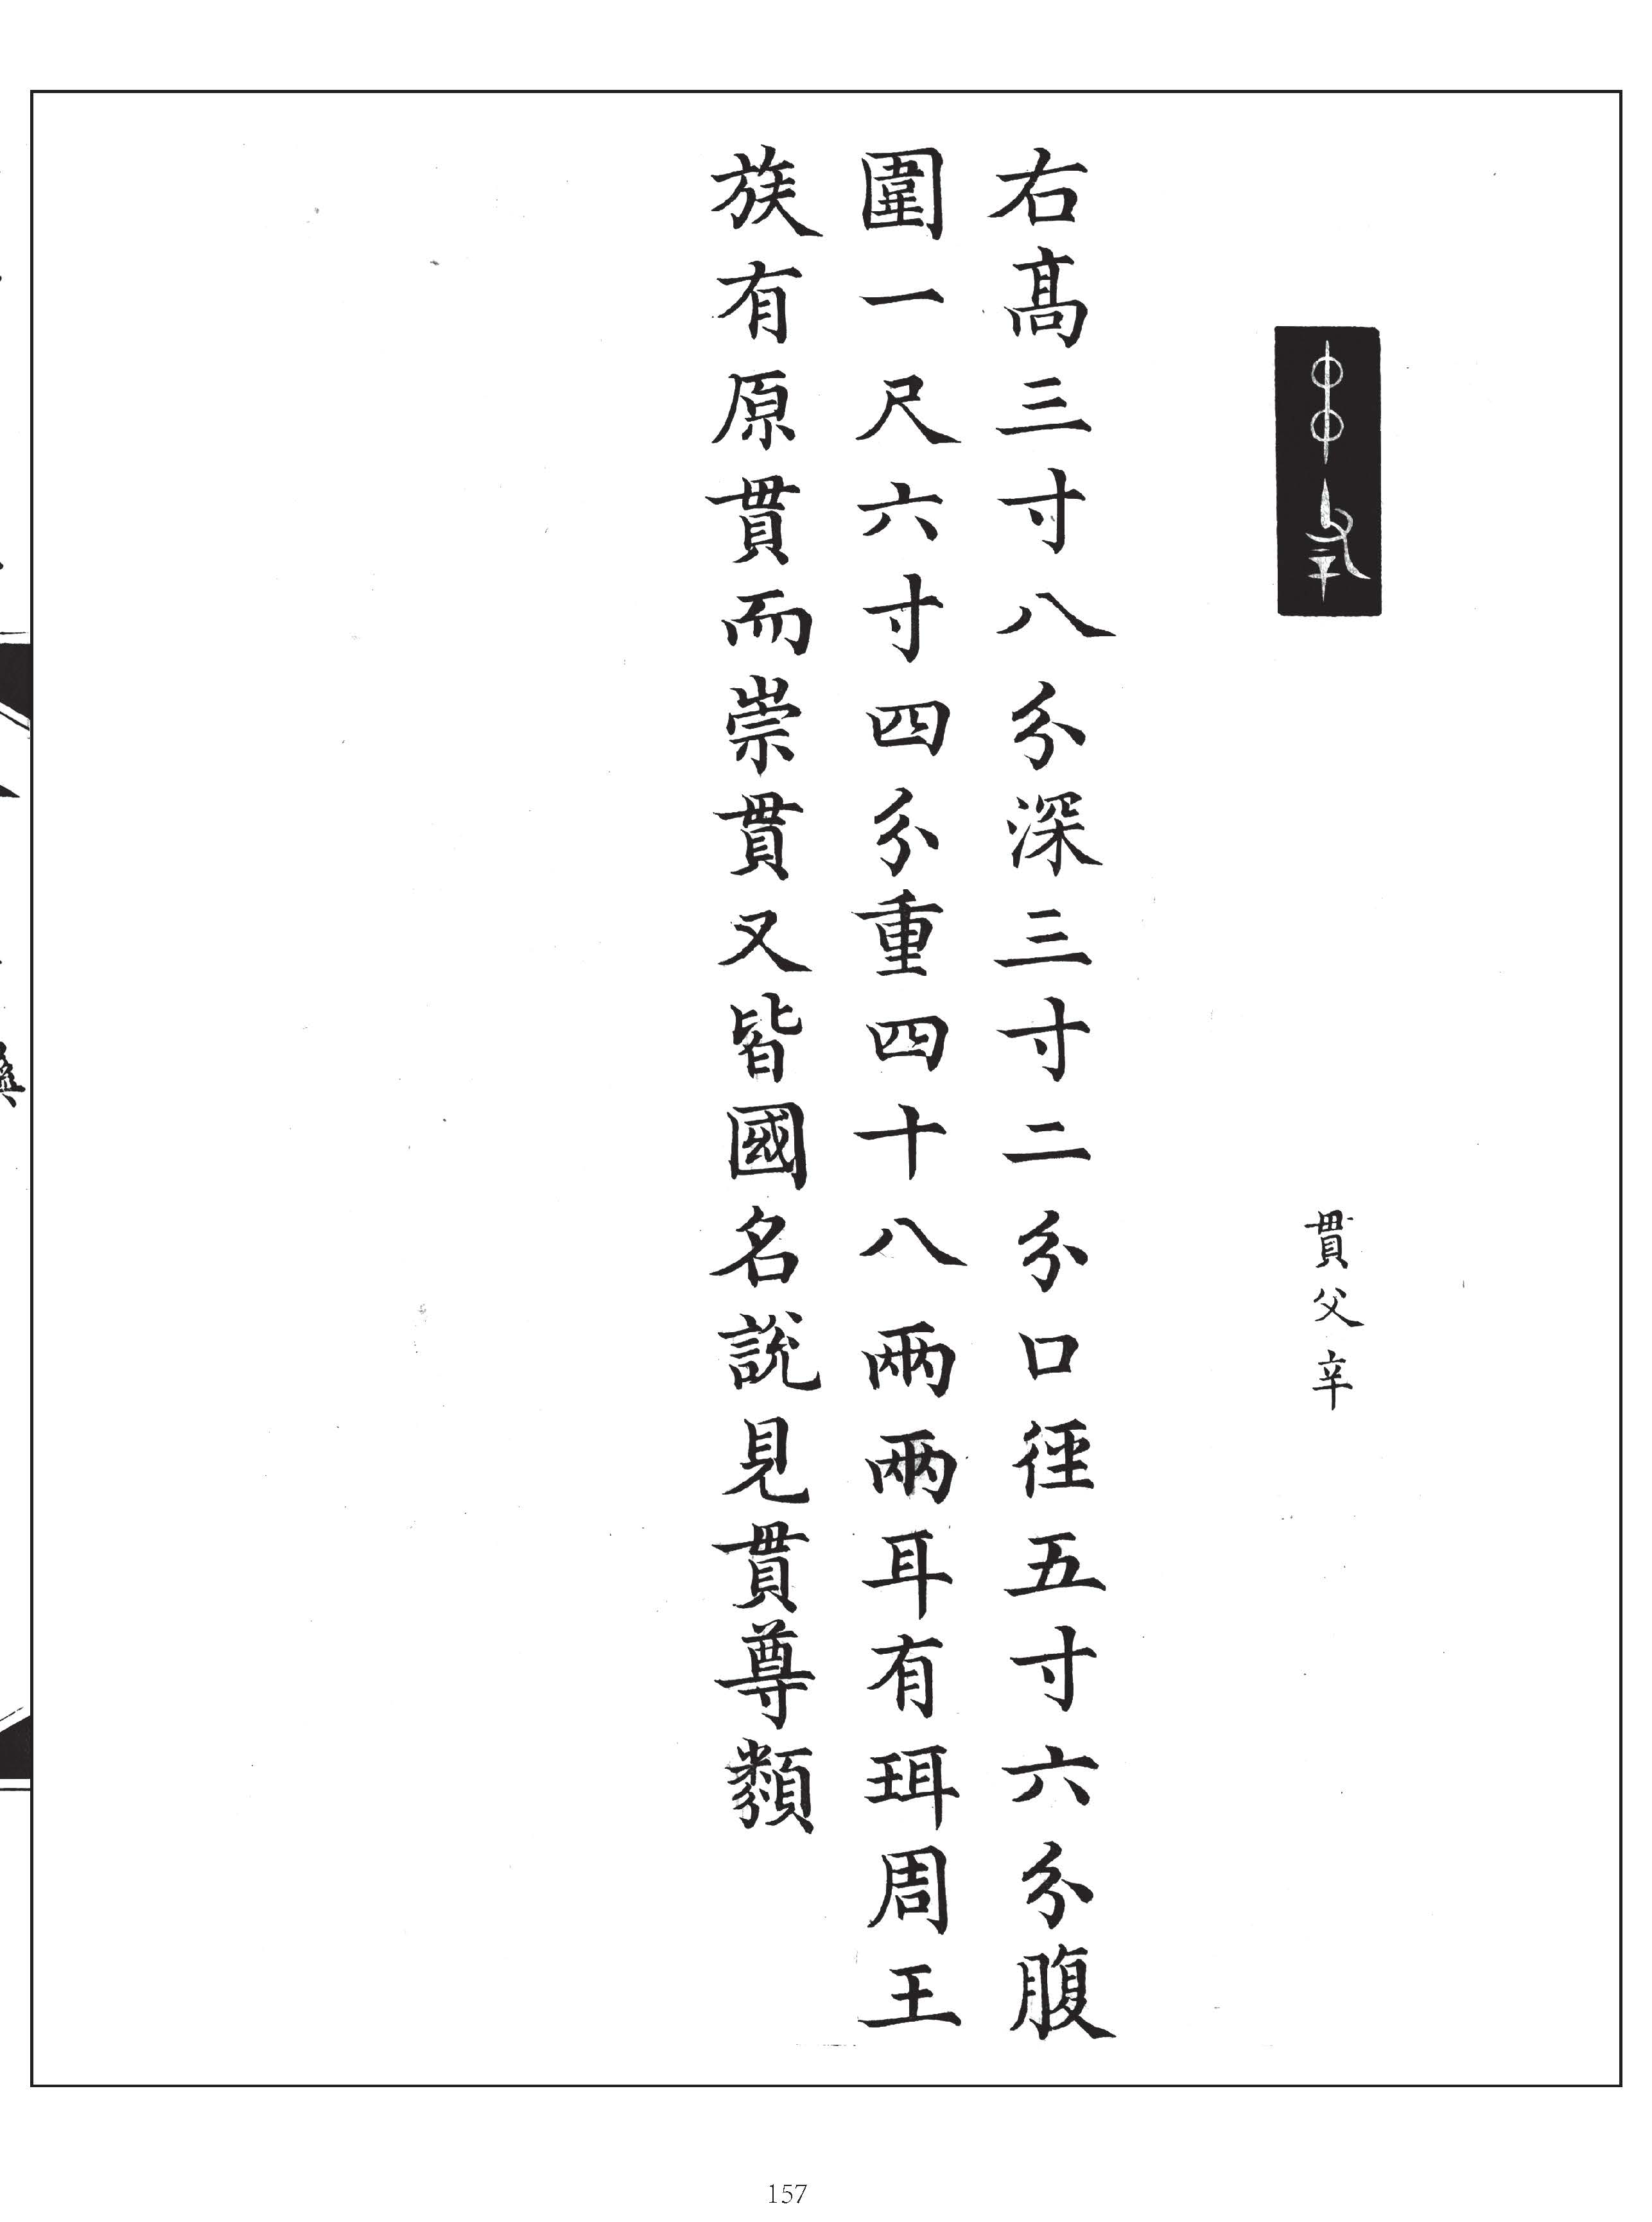 貫父辛
右高三寸八分深三寸二分口徑五寸六分腹
圍一尺六寸四分重四十八兩兩耳有珥周王
族有原貫而崇貫又皆國名說見貫尊類
157